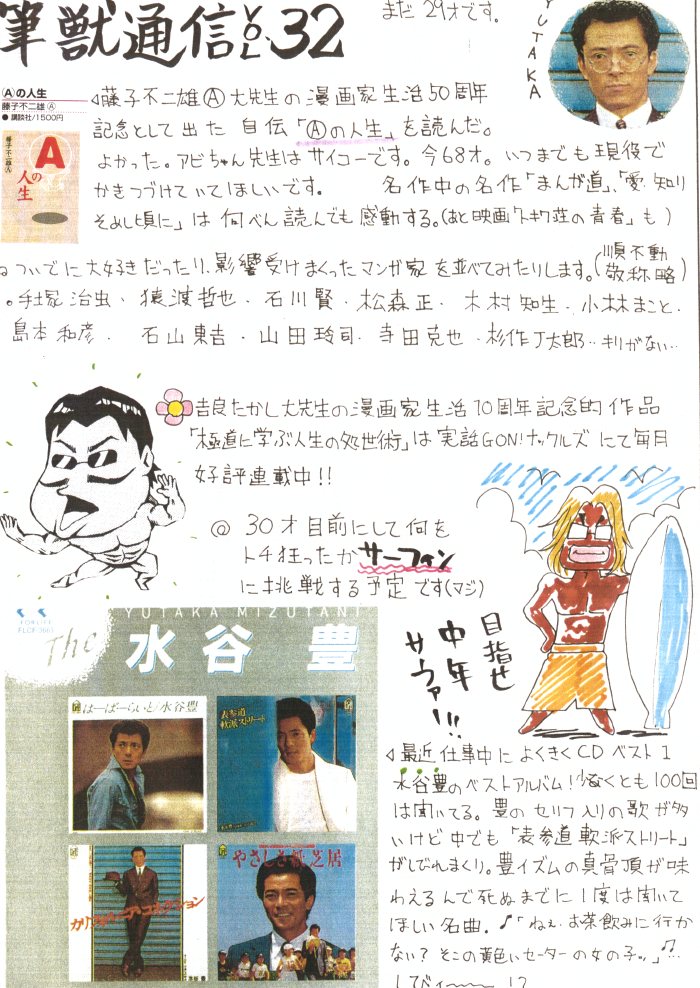 筆獣通信VOL.32
まだ29才です。
YUTAKA
Ⓐの人生
藤子不二雄Ⓐ
●講談社/1500円
藤子不二雄Ⓐ
A
の
人生
◁藤子不二雄Ⓐ大先生の漫画家生活50周年
記念として出た自伝「Ⓐの人生」を読んだ。
よかった。アビちゃん先生はサイコーです。今68才。いつまでも現役で
かきつづけていてほしいです。 名作中の名作「まんが道」、「愛・知り
そめし頃に」は何べん読んでも感動する。(あと映画「トキワ荘の青春」も)
ついでに大好きだったり、影響受けまくったマンガ家を並べてみたりします。(順不動
敬称略)
。手塚治虫・猿渡哲也・石川賢・松森正・木村知生・小林まこと・
島本和彦・石山東吉・山田玲司・寺田克也・杉作J太郎‥キリがない…
吉良たかし大先生の漫画家生活10周年記念的作品
「極道に学ぶ人生の処世術」は実話GON!ナックルズにて毎月
好評連載中!!
@ 30才目前にして何を
トチ狂ったかサーフィン
に挑戦する予定です(マジ)
目指せ
中年
サウァー!!
FOR LIFE
YUTAKA MIZUTANI
The
水谷 豊
はーばーらいと/水谷豊
表参道
軟派ストリート
カリフォルニア・コネクション
やさしさ紙芝居
◁最近仕事中によくきくCDベスト1
水谷豊のベストアルバム!少なくとも100回
は聞いてる。豊のセリフ入りの歌が多
いけど中でも「表参道軟派ストリート」
がしびれまくり。豊イズムの真骨頂が味
わえるんで死ぬまでに1度は聞いて
ほしい名曲.♪「ねぇ、お茶飲みに行か
ない?そこの黄色いセーターの女の子…」♫…